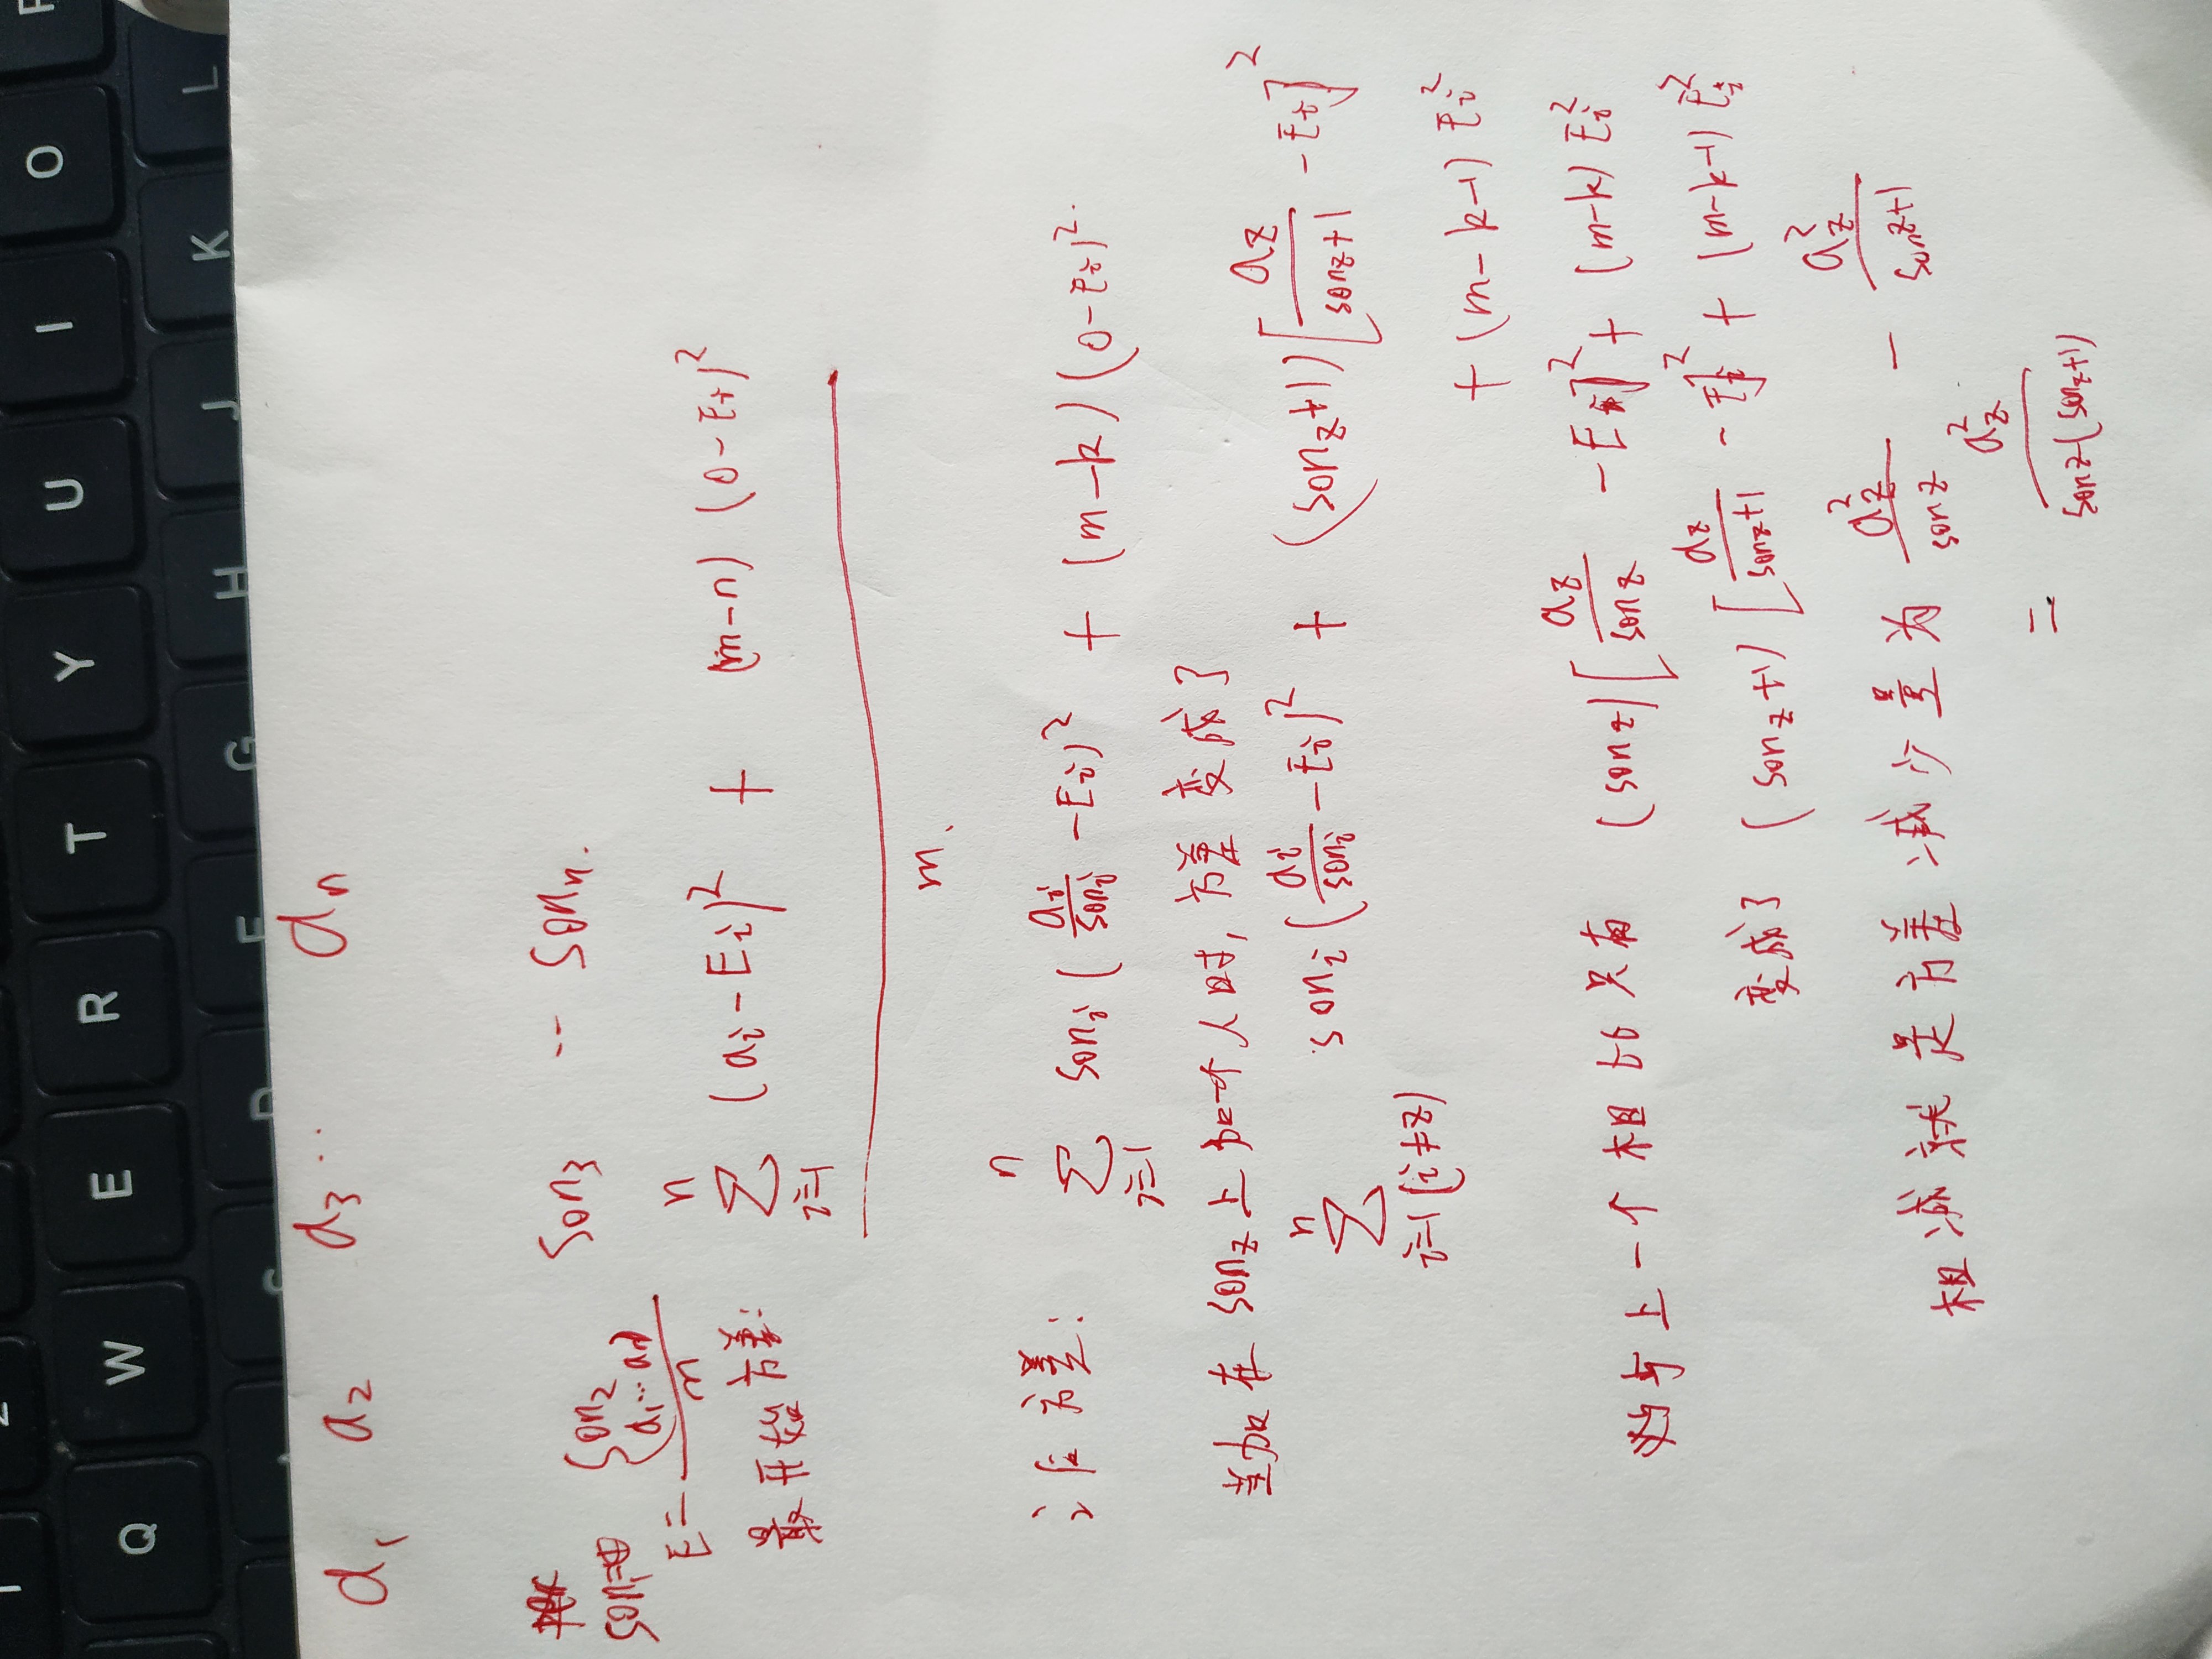 Q W E R T Y U I O P
S D F G H J K L
a₁ a₂ a₃ ·· aₙ
son₁= son₂ son₃ ·· sonₙ.
E = (a₁…aₙ) / m
最开始方差: ∑_{i=1}^{n} (aᵢ-Eᵢ)² + (m-n) (0-Eᵢ)²
m.
之后方差: ∑_{i=1}^{n} sonᵢ ( aᵢ/sonᵢ -Eᵢ)² + (m-k) (0-Eᵢ)².
当加在 son_z 上加一个人时, 方差变成了
∑_{i=1(i≠z)}^{n} sonᵢ ( aᵢ/sonᵢ -Eᵢ)² + (son_z+1) [ a_z/(son_z+1) -Eᵢ]²
+ (m-k-1) Eᵢ²
与上一个相比只有 (son_z) [ a_z/son_z -Eᵢ]² + (m-k) Eᵢ²
变成了 (son_z+1) [ a_z/(son_z+1) -Eᵢ]² + (m-k-1) Eᵢ²
相减就是方差减少量为 a_z²/son_z - a_z²/(son_z+1)
= a_z² / son_z(son_z+1)